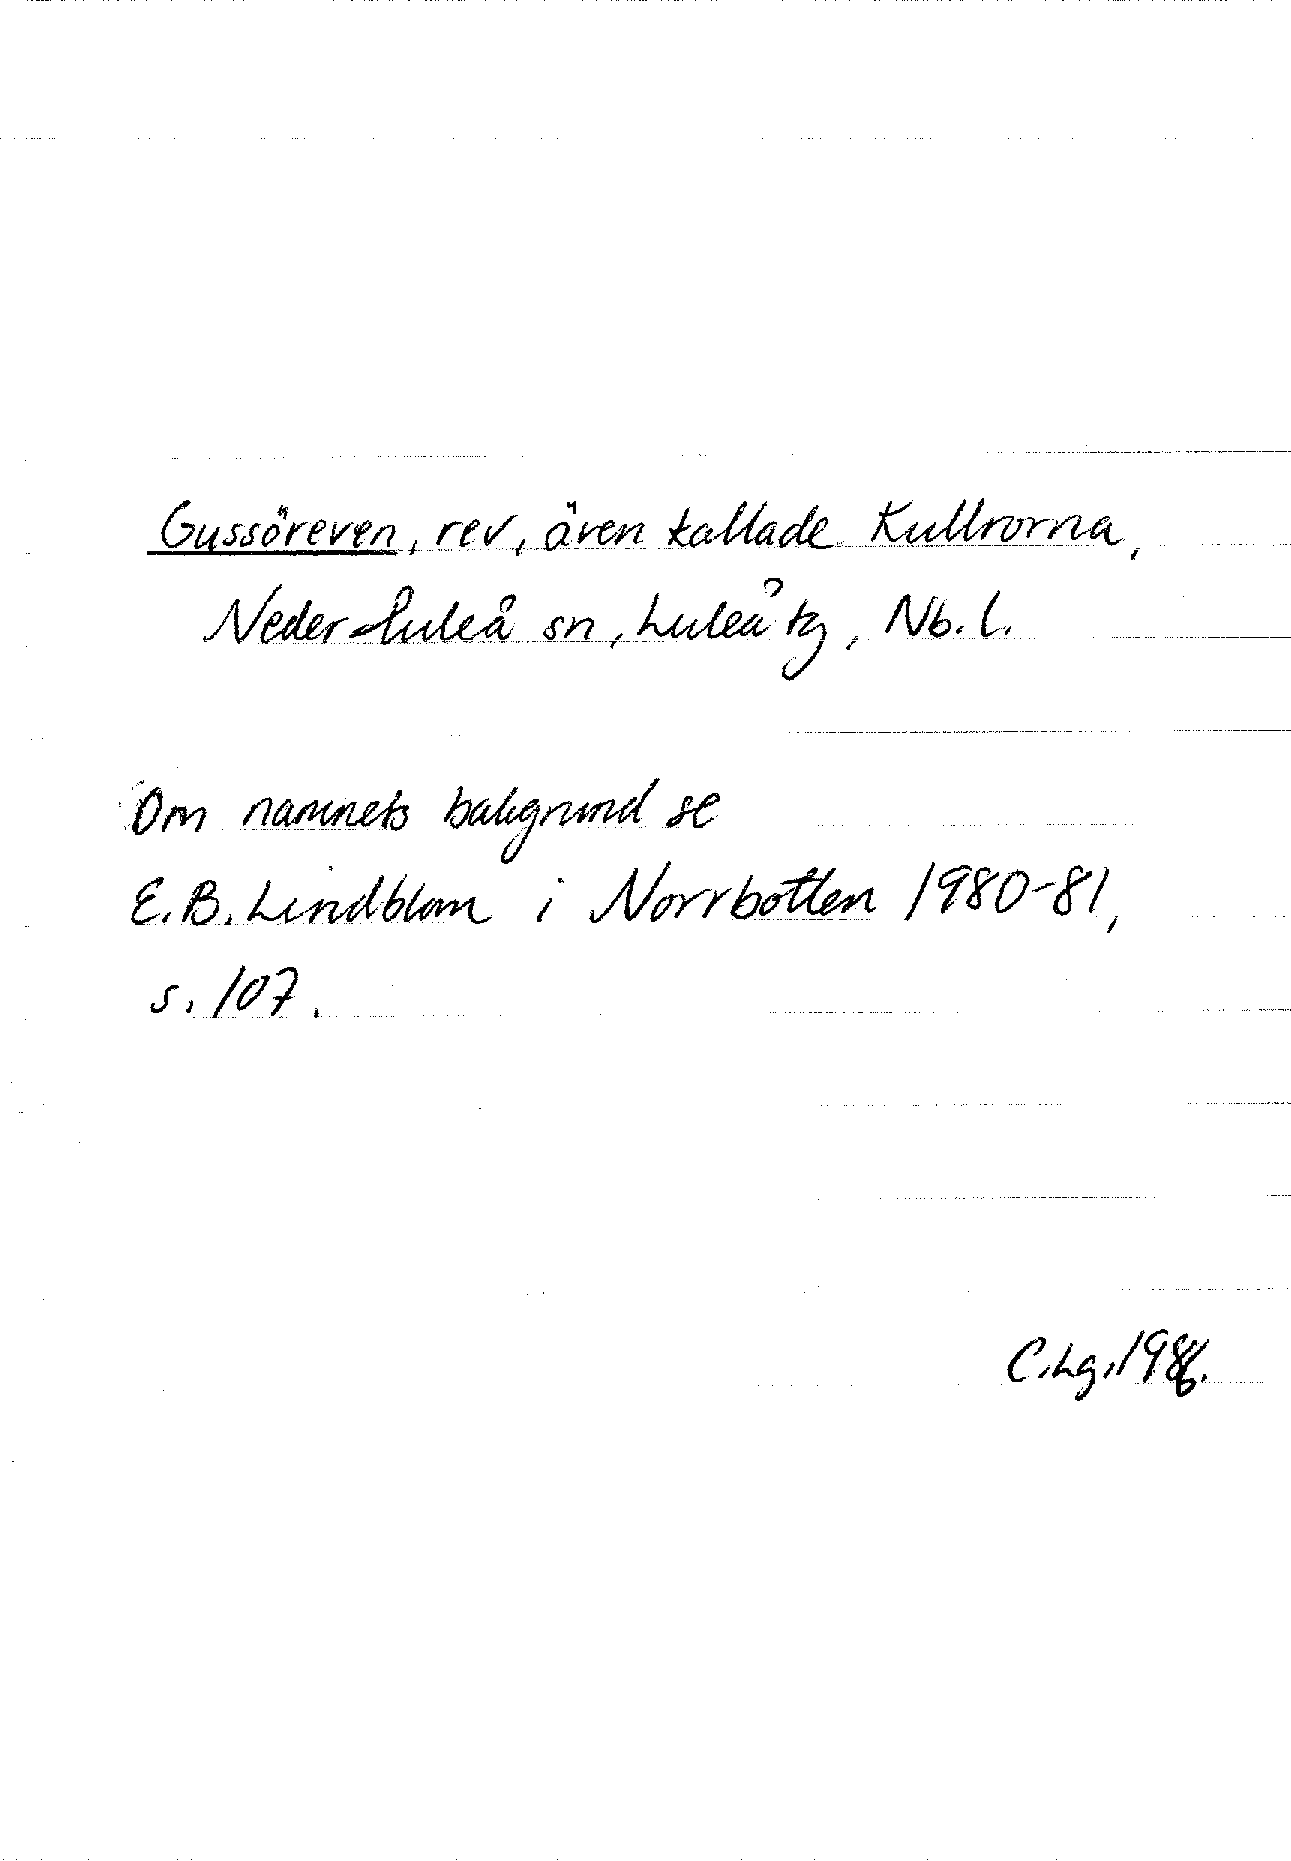 Gussöreven, rev, även kallade Kullrorna,
Neder-Luleå sn, Luleå tg, Nb. l.
Om namnets bakgrund se
E.B. Lindblom i Norrbotten 1980-81,
s. 107.
C.Lg. 1986.